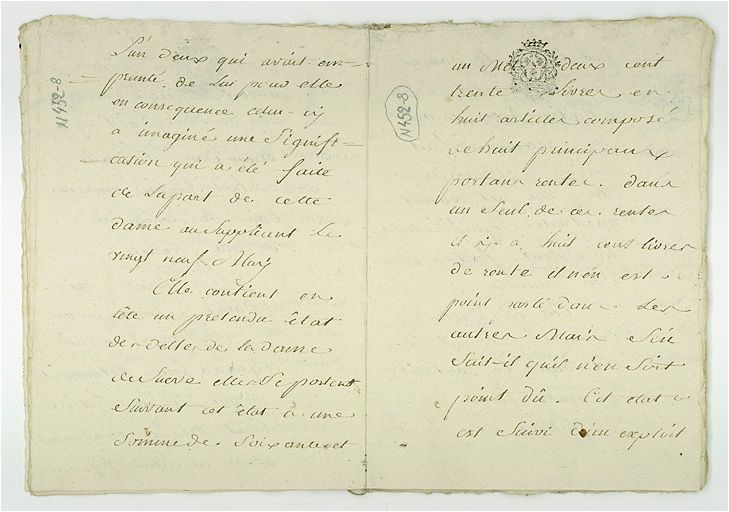 L'un deux qui avait em-
prunté de lui pour elle
en consequence celui-cy
a imaginé une Signifi-
cation qui a été faite
de la part de cette
dame au Suppliant le
vingt neuf May
Elle contient en
tête un pretendu état
des dettes de la dame
de elles Se portent
Suivant cet état a une
Somme de Soixante et
N452-8
un deux cent
trente Livres en
huit articles composé
de huit principaux
portant rentes. dans
un Seul de ces rentes
il y a huit cens livres
de rente il n'en est
point parlé dans Les
autres Mais
Suit-il qu'il n'en Soit
point dû. Cet état
est Suivi d'un exploit
N452-8